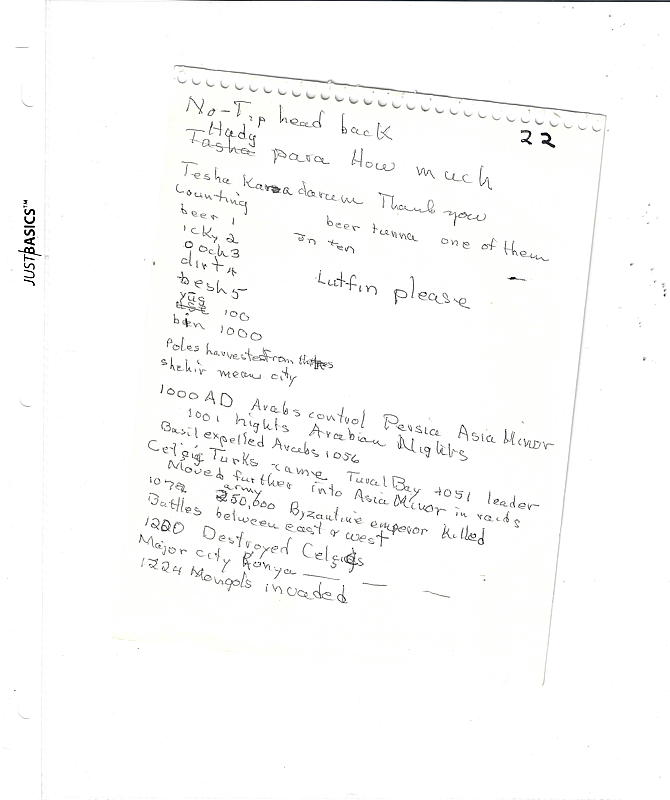 22
No-Tip head back
Hady
Tasha para How much
Tesha Karadarum Thank you
Counting
beer 1 beer tunna one of them
icky 2 on ten
ooch 3
dirt 4 Lutfin please
besh 5
yus 100
bin 1000
Poles harvested from
shehir mean city
1000 AD Arabs control Persia Asia Minor
1001 nights Arabian Nights
Basil expelled Arabs 1056
Turks came Bay 1051 leader
Moved further into Asia Minor in raids
army
107 250,000 Byzantine emperor killed
Battles between east & west
1220 Destroyed
Major city Konya
1224 Mongols invaded
JUST BASICS™